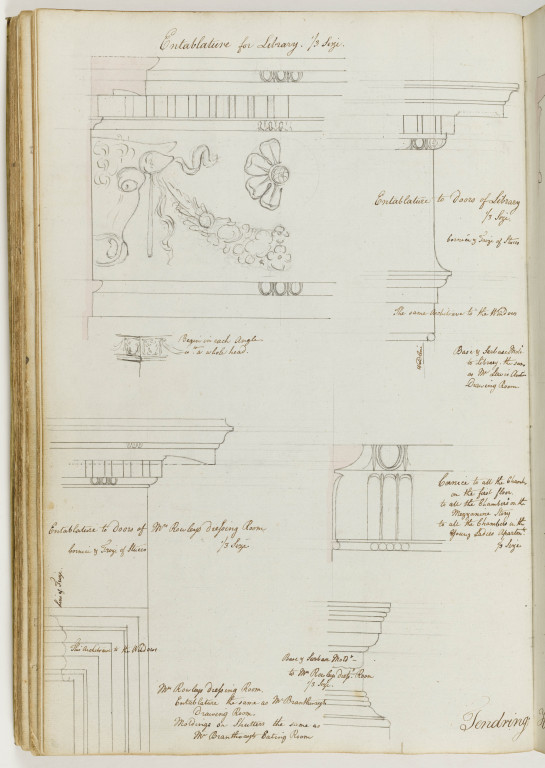 Entablature for Library. 1/3 Size.
Entablature to Doors of Library
1/3 Size
Cornice & Freize of Stucco
The same Architrave to the Windows
Begin in each Angle
a whole head.
Base & Surbase
to Library, the same
as Mr
Drawing Room
Entablature to Doors of Mrs Rowleys dressing Room
Cornice & Freize of Stucco
1/3 Size
Line of Freize
This Architrave to the Windows
Cornice to all the Chambrs
on the first floor,
to all the Chambers in the
Mezzanine Story
to all the Chambers in the
Young Ladies Apartmt
1/3 Size
Base & Surbase Moldgs
to Mrs Rowleys dressg Room
1/3 Size
Mrs Rowleys dressing Room
Entablature the same as Mr Branthwayts
Drawing Room
Moldings on Shutters the same as
Mr Branthwayts Eating Room
Tendring